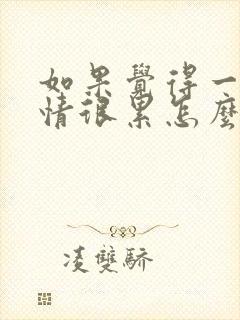 如果覺得一
情很累怎麼
凌雙驕